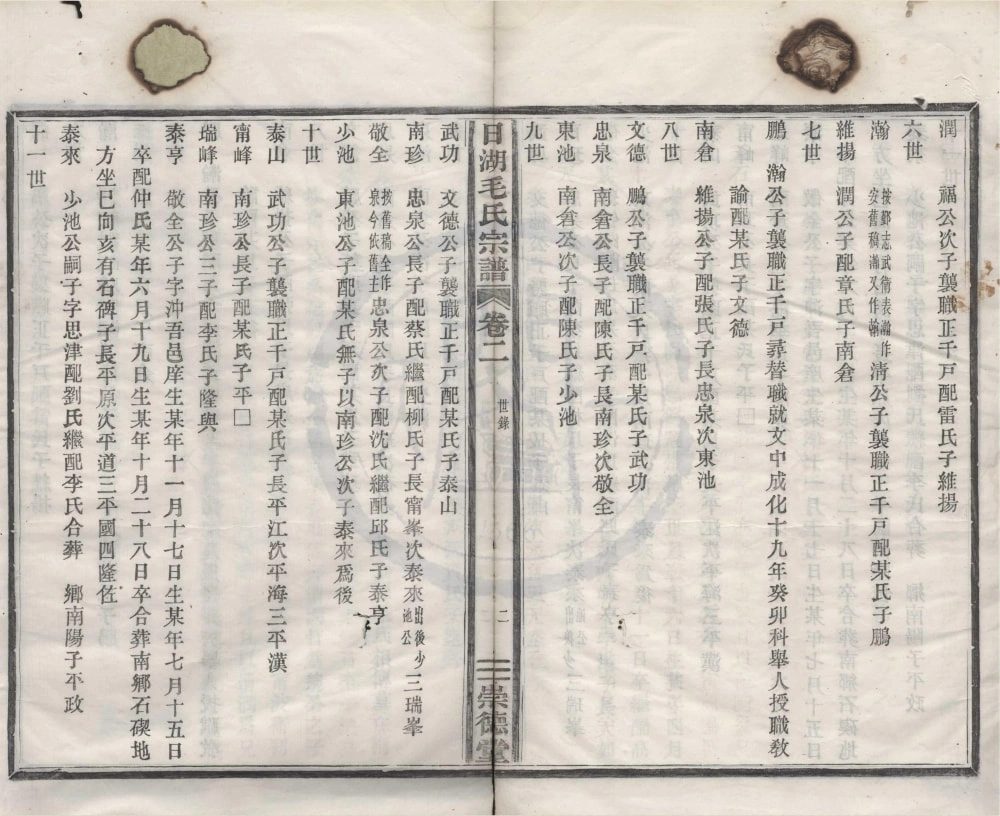 潤　福公次子襲職正千戸配雷氏子維揚
六世
瀚　按鄞志武衛表瀚作安舊稿瀚又作翰　清公子襲職正千戸配某氏子鵬
維揚　潤公子配章氏子南倉
七世
鵬　瀚公子襲職正千戸尋替職就文中成化十九年癸卯科舉人授職教
諭配某氏子文德
南倉　維揚公子配張氏子長忠泉次東池
八世
文德　鵬公子襲職正千戸配某氏子武功
忠泉　南倉公長子配陳氏子長南珍次敬全
東池　南倉公次子配陳氏子少池
九世
日湖毛氏宗譜　卷二　世錄　二　崇德堂
武功　文德公子襲職正千戸配某氏子泰山
南珍　忠泉公長子配蔡氏繼配柳氏子長甯峯次泰來出後少池公三瑞峯
敬全　按舊稿全作泉今依舊主　忠泉公次子配沈氏繼配邱氏子泰亨
少池　東池公子配某氏無子以南珍公次子泰來爲後
十世
泰山　武功公子襲職正千戸配某氏子長平江次平海三平漢
甯峰　南珍公長子配某氏子平□
瑞峰　南珍公三子配李氏子隆與
泰亨　敬全公子字沖吾邑庠生某年十一月十七日生某年七月十五日
卒配仲氏某年六月十九日生某年十月二十八日卒合葬南鄉石碶地
方坐巳向亥有石碑子長平原次平道三平國四隆佐
泰來　少池公嗣子字思津配劉氏繼配李氏合葬　鄉南陽子平政
十一世